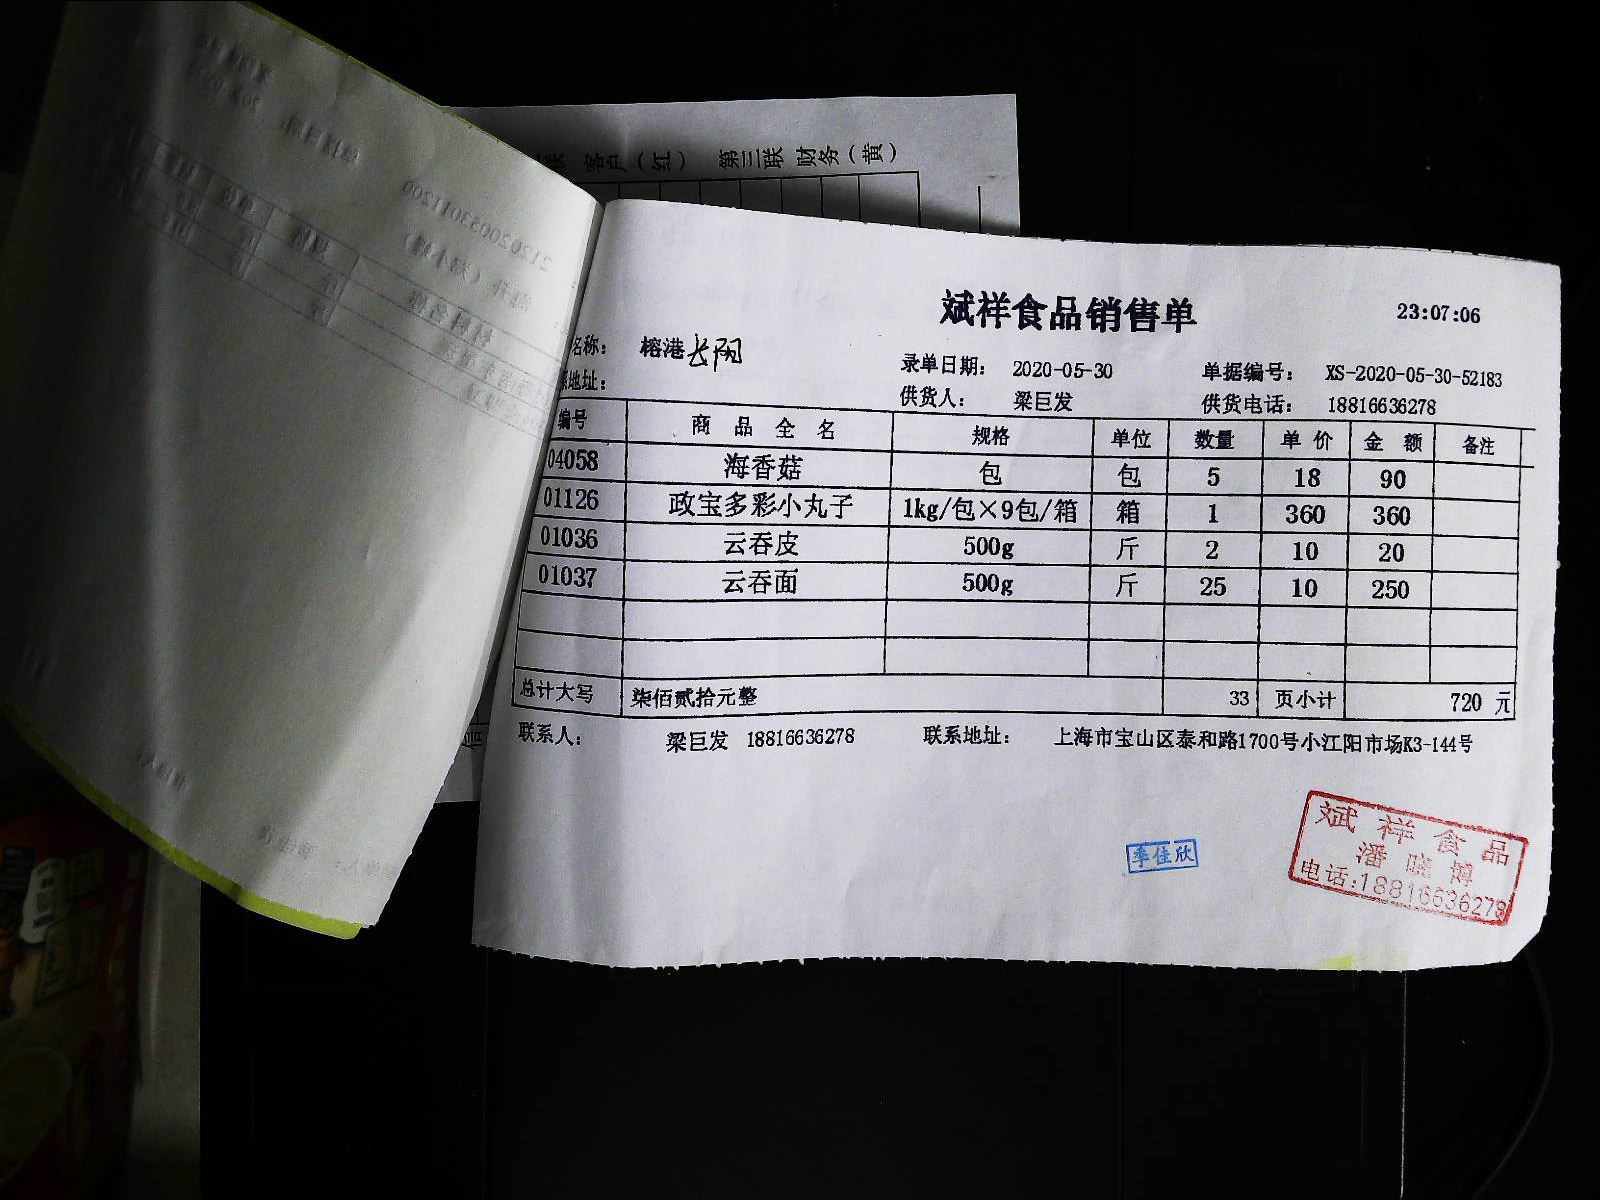 客户（红） 第三联 财务（黄）
斌祥食品销售单 23:07:06
名称： 榕港长阳
录单日期： 2020-05-30 单据编号： XS-2020-05-30-52183
地址：
供货人： 梁巨发 供货电话： 18816636278
编号 商品全名 规格 单位 数量 单价 金额 备注
04058 海香菇 包 包 5 18 90
01126 政宝多彩小丸子 1kg/包×9包/箱 箱 1 360 360
01036 云吞皮 500g 斤 2 10 20
01037 云吞面 500g 斤 25 10 250
总计大写 柒佰贰拾元整 33 页小计 720 元
联系人： 梁巨发 18816636278 联系地址： 上海市宝山区泰和路1700号小江阳市场K3-144号
季佳欣
斌祥食品
潘晓博
电话:18816636278